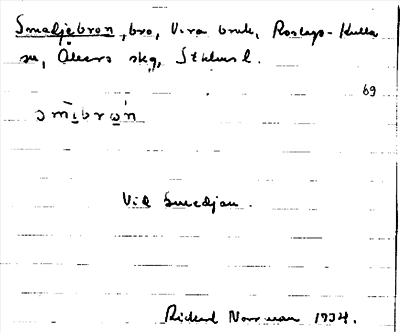 Smedjebron, bro, Vira bruk, Roslags-Kulla
sn, Åkers skg, Sthlms l.
69
smībrωn
Vid Smedjan.
Rickard Norrman 1934.